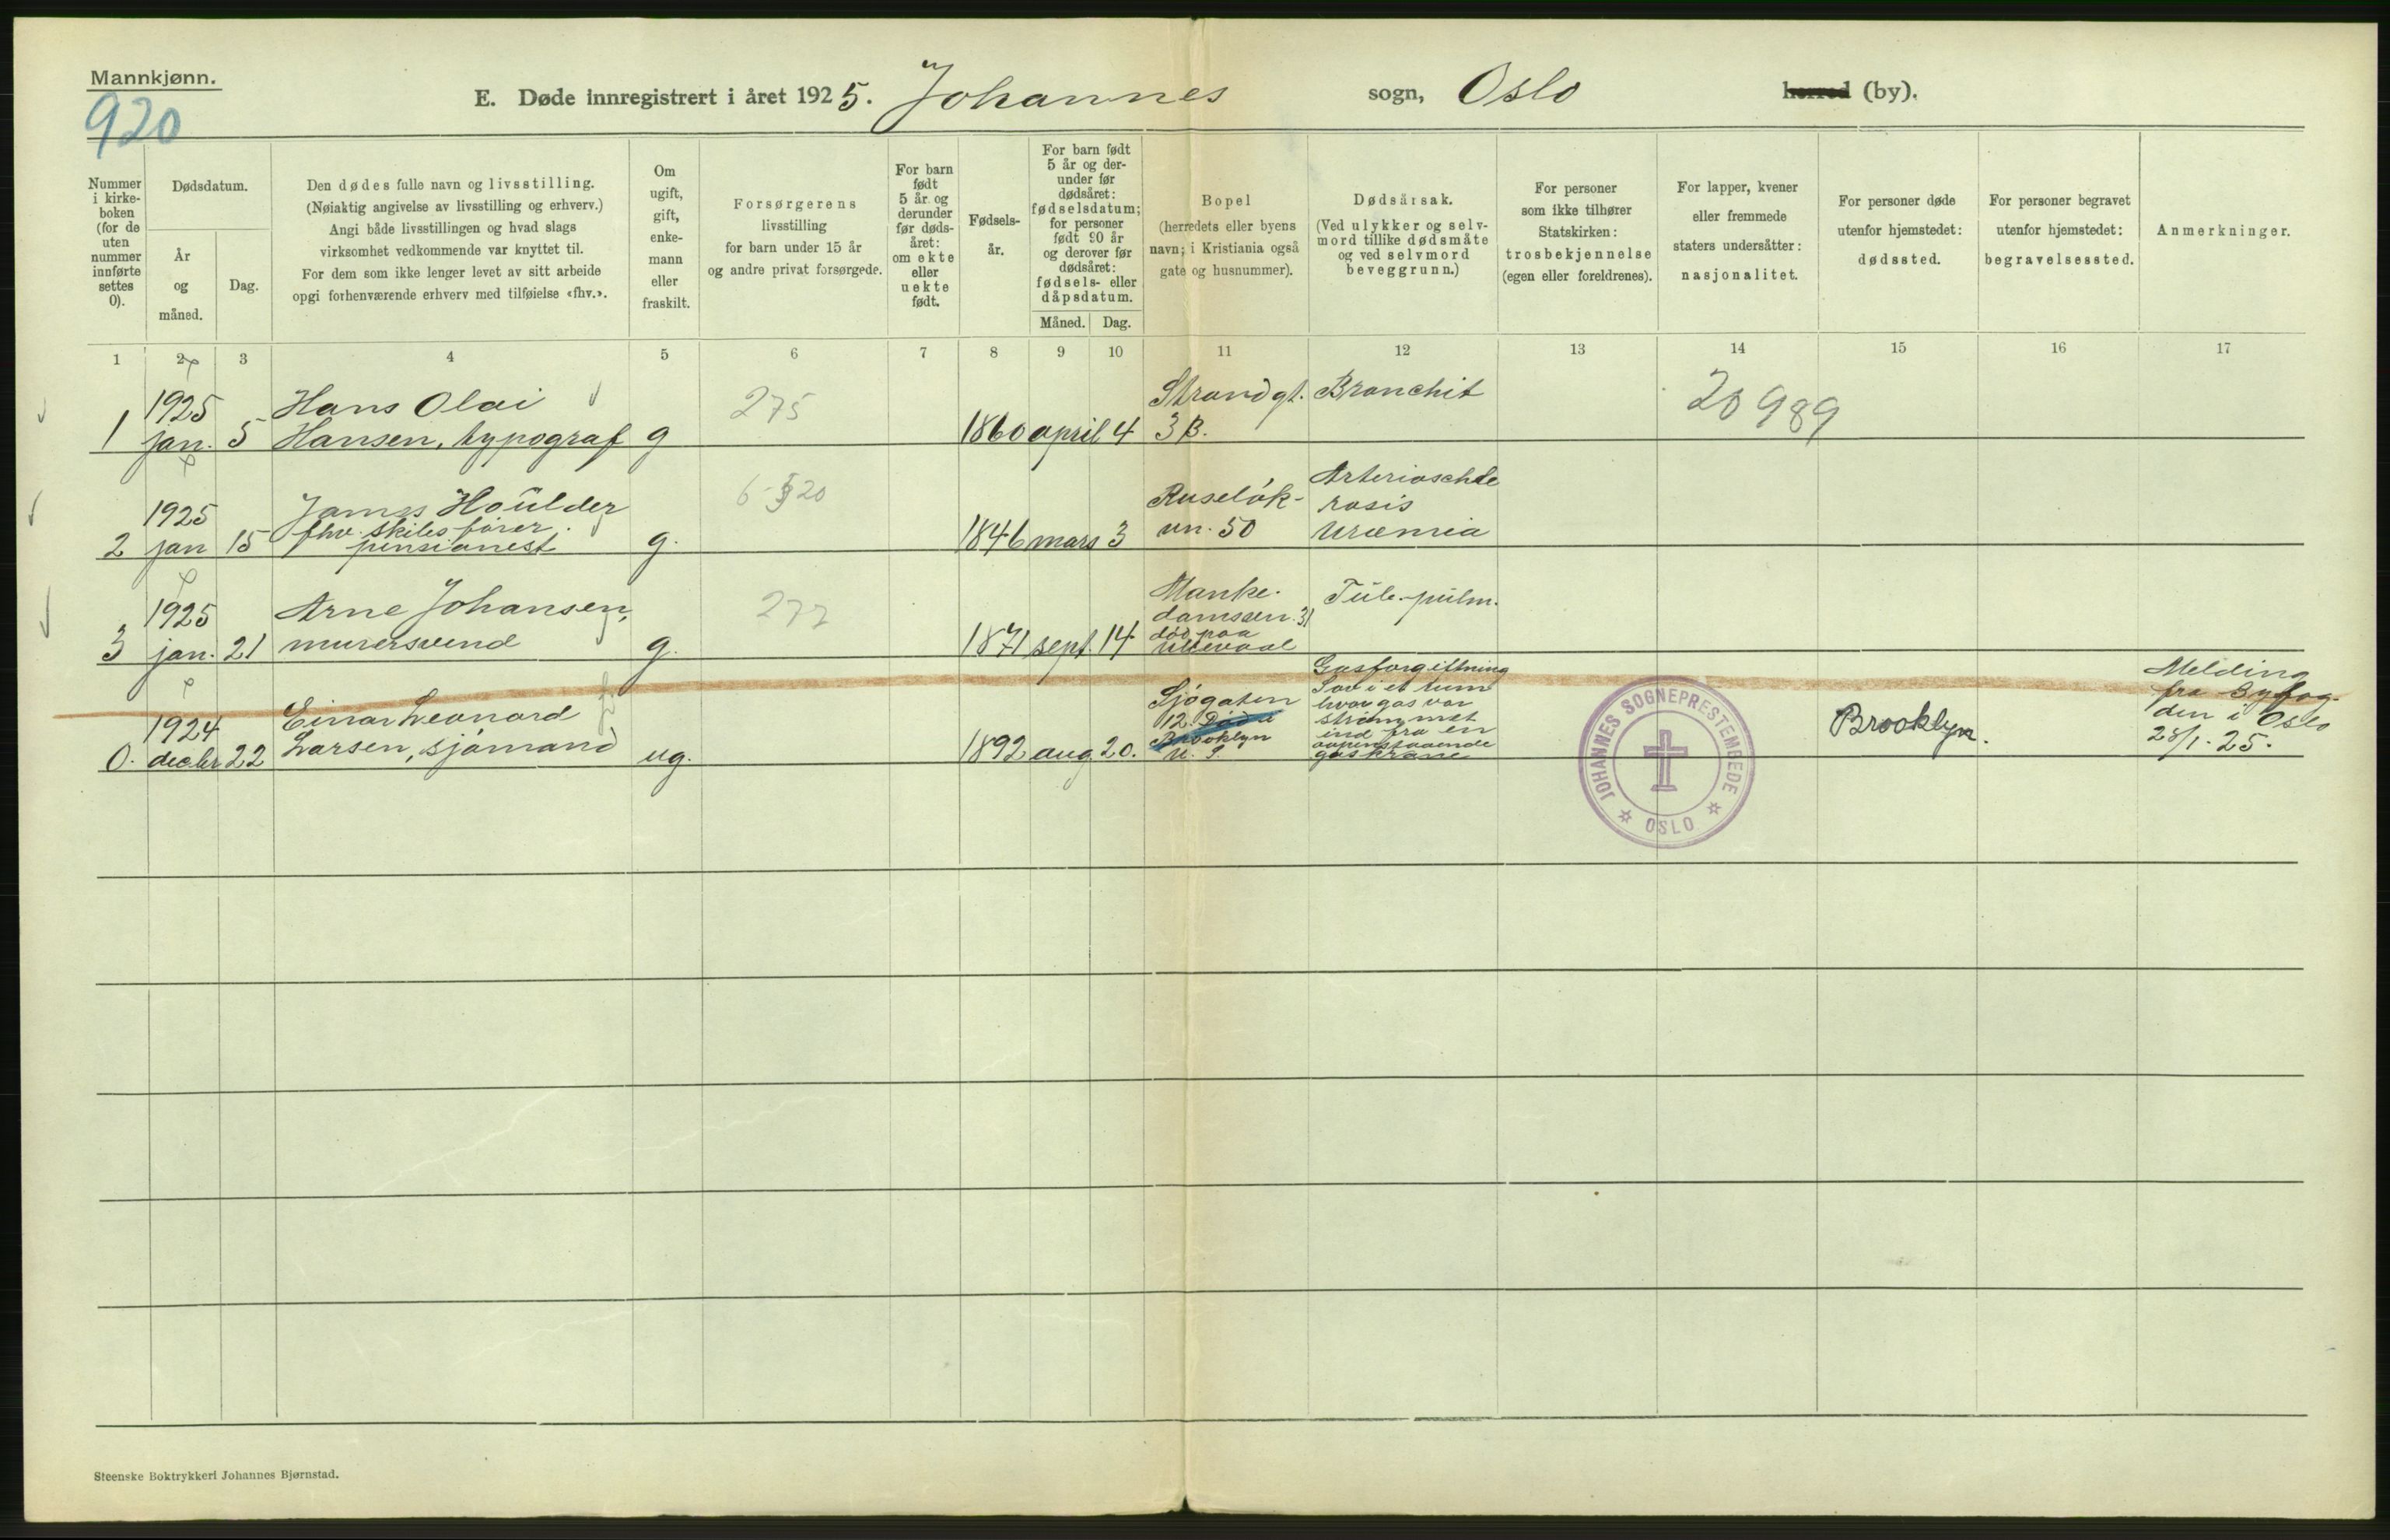 Mannkjønn.
920
E. Døde innregistrert i året 1925. Johannes sogn, Oslo herred (by).
Nummer
i kirke-
boken
(for de
uten
nummer
innførte
settes
0).
Dødsdatum.
År
og
måned.
Dag.
Den dødes fulle navn og livsstilling.
(Nøiaktig angivelse av livsstilling og erhverv.)
Angi både livsstillingen og hvad slags
virksomhet vedkommende var knyttet til.
For dem som ikke lenger levet av sitt arbeide
opgi forhenværende erhverv med tilføielse «fhv.».
Om
ugift,
gift,
enke-
mann
eller
fraskilt.
Forsørgerens
livsstilling
for barn under 15 år
og andre privat forsørgede.
For barn
født
5 år og
derunder
før døds-
året:
om ekte
eller
uekte
født.
Fødsels-
år.
For barn født
5 år og der-
under før
dødsåret:
fødselsdatum;
for personer
født 90 år
og derover før
dødsåret:
fødsels- eller
dåpsdatum.
Måned. Dag.
Bopel
(herredets eller byens
navn; i Kristiania også
gate og husnummer).
Dødsårsak.
(Ved ulykker og selv-
mord tillike dødsmåte
og ved selvmord
beveggrunn.)
For personer
som ikke tilhører
Statskirken:
trosbekjennelse
(egen eller foreldrenes).
For lapper, kvener
eller fremmede
staters undersåtter:
nasjonalitet.
For personer døde
utenfor hjemstedet:
dødssted.
For personer begravet
utenfor hjemstedet:
begravelsessted.
Anmerkninger.
1 2 3 4 5 6 7 8 9 10 11 12 13 14 15 16 17
1925 Hans Olai 275 Strandgt. Bronchit 20989
1 jan. 5 Hansen, typograf g 1860 april 4 3 B.
Arterioschle
1925 James Houlder 6-520 Ruseløk- rosis
fhv. skibsfører
2 jan 15 pensionest g. 1846 mars 3 vn. 50 Uræmia
1925 Arne Johansen, 277 Munke- Tub. pulm.
damsveien 31
død paa
3 jan. 21 murersvend g. 1871 sept. 14 Ullevaal
Gasforgiftning
Sov i et rum
hvor gas var
strømmet
ind fra en
aapenstaaende
gaskrane
1924 Einar Leonard Sjøgaten
12. Død i
Brooklyn
U. S.
0. decbr 22 Larsen, sjømand ug. 1892 aug. 20.
Brooklyn.
Melding
fra Byfog-
den i Oslo
28/1. 25.
JOHANNES SOGNEPRESTEMBEDE
OSLO
Steenske Boktrykkeri Johannes Bjørnstad.